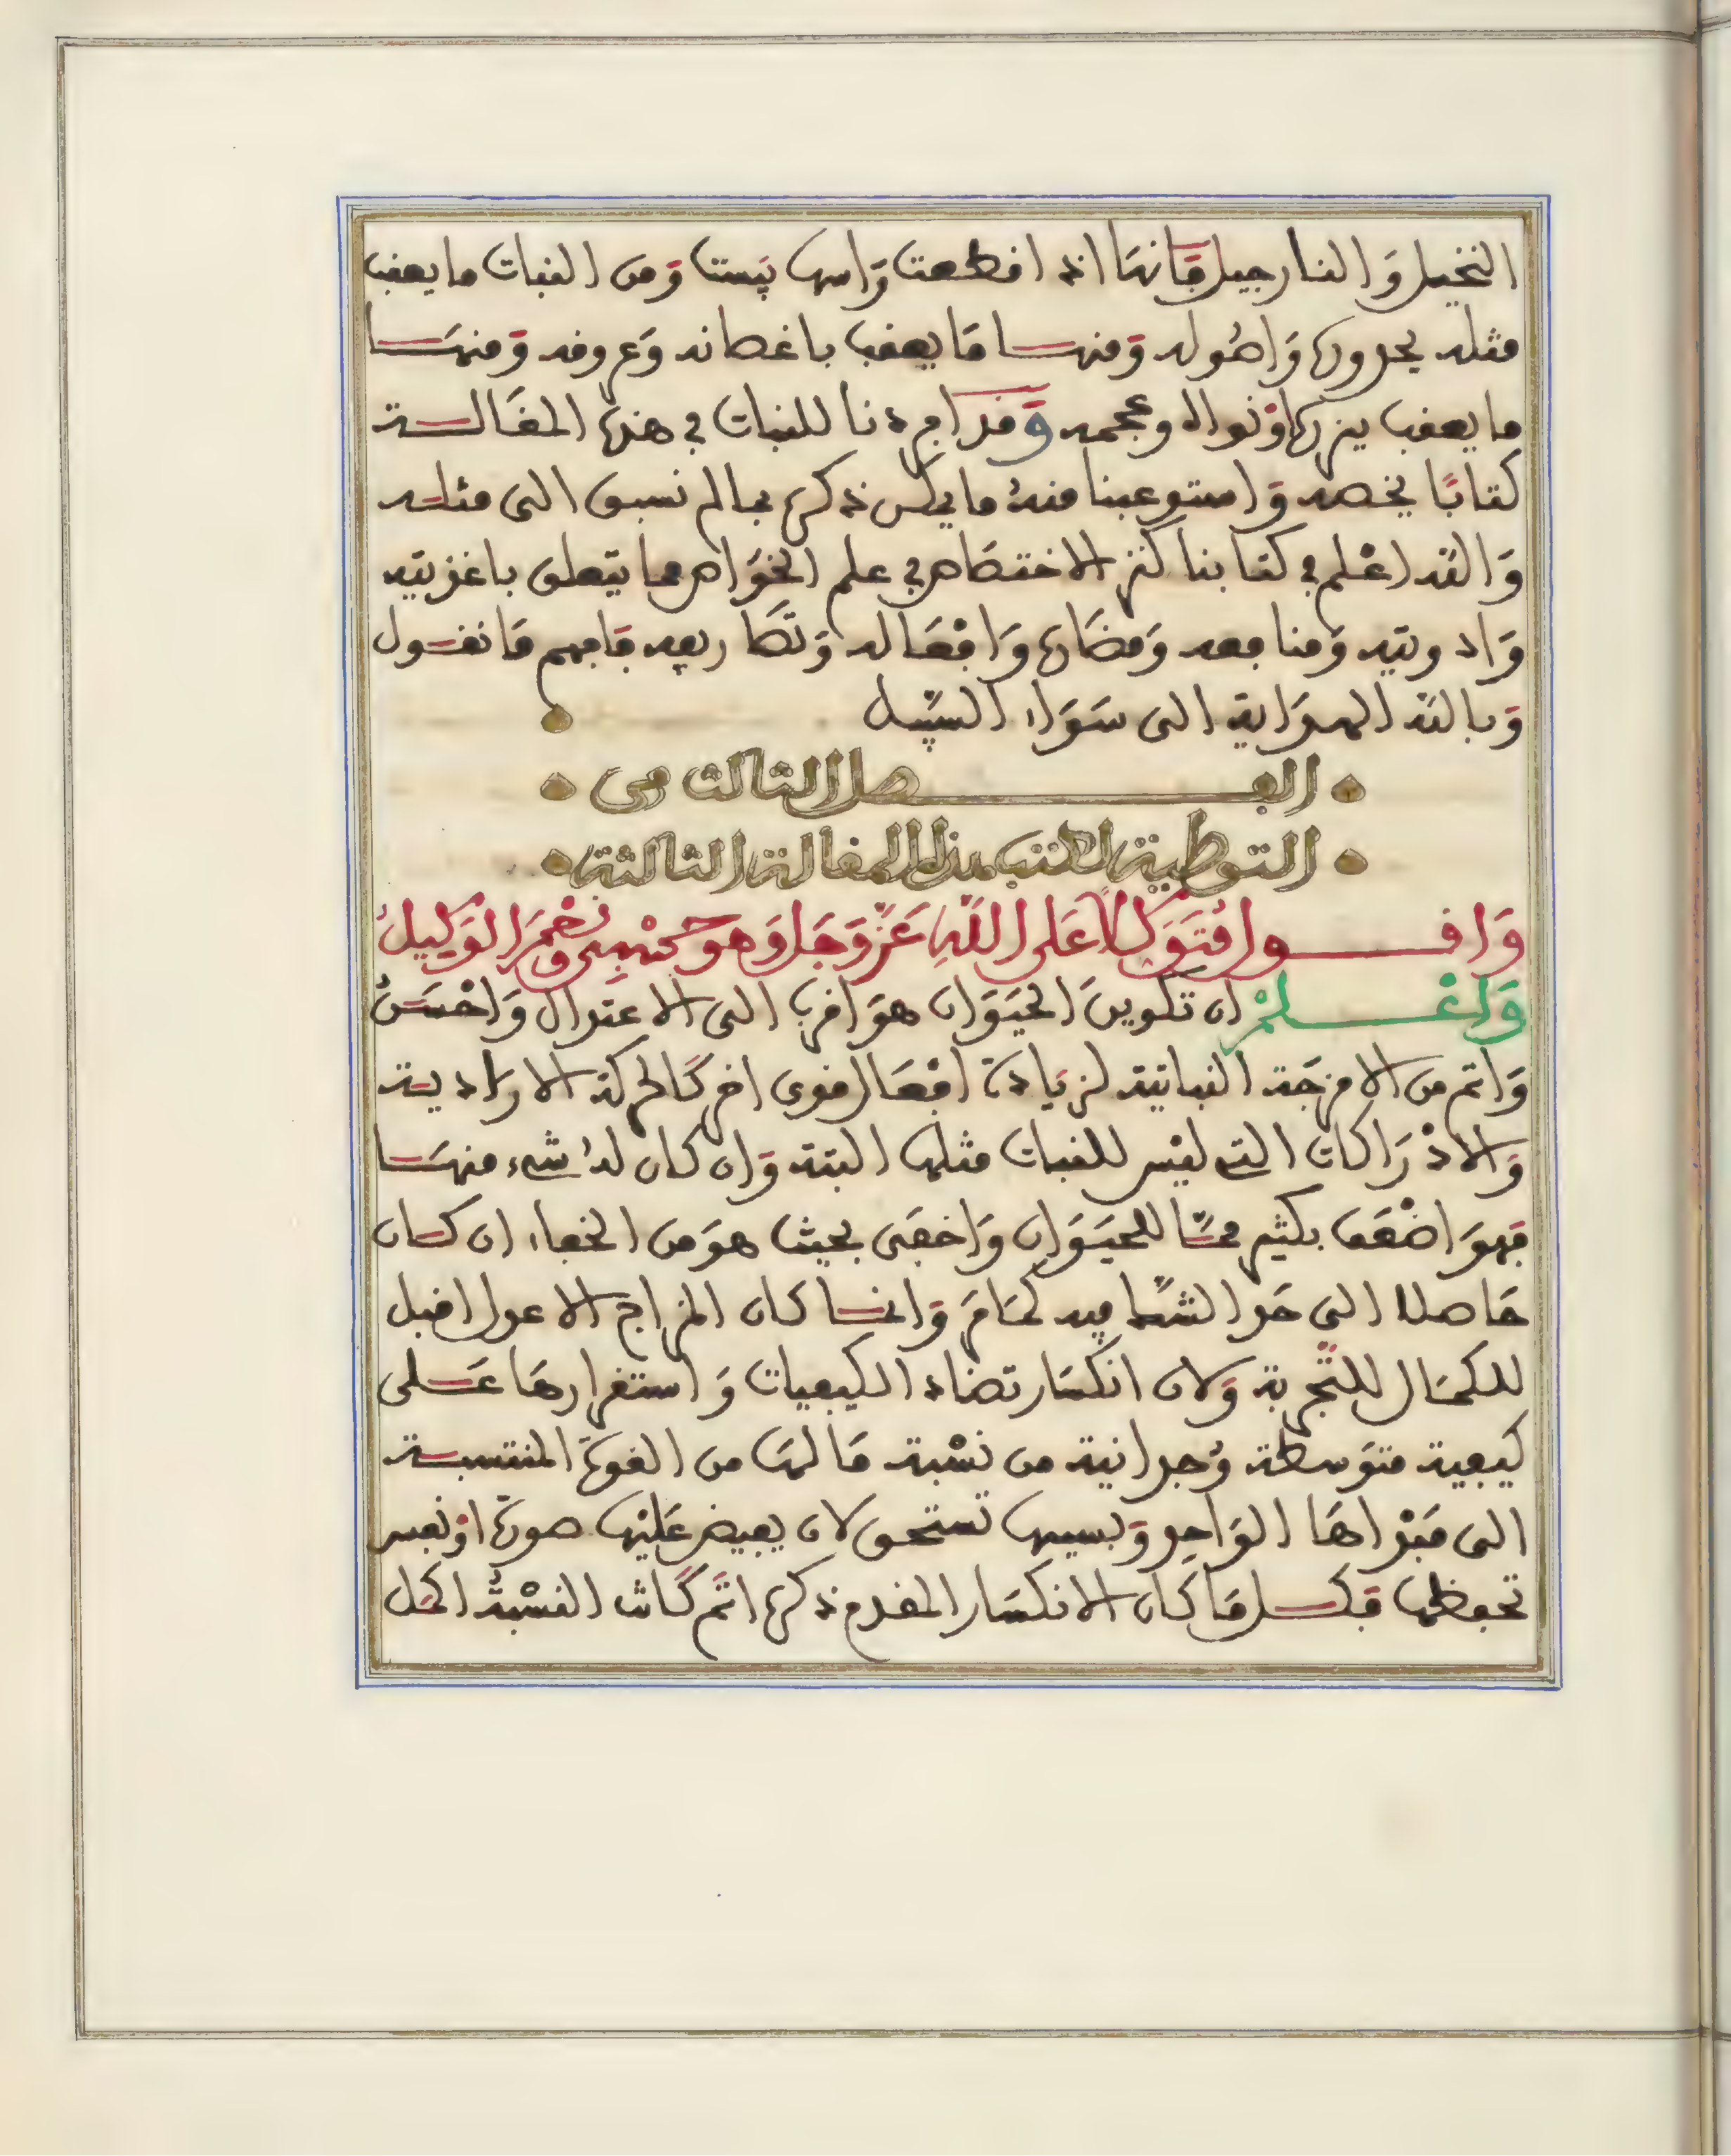 النخيل وَالنارجيل فَإنها اذا اقطعت رَاسها يَبست وَمن النبات ما يعقب
مثله بجدوره وَاصُوله وَمنها مَا يعقب باغصانه وَعروقه وَمنهَا
ما يعقب ببزره اوْ نواله وعجمه وَقد افردنا للنبات في هذه المقَالة
كتابًا يخصه وَاستوعبنا منهُ ما يمكن ذكره بما لم نسبق الى مثله
وَاللَه اعْلم في كتابنا كنز الاختصَاص في علم الخوَاص مما يتعلق باغذيته
وَادويته وَمنافعه وَمضَاره وَافْعَاله وَتصَاريفه فَافهم مَا نقول
وَباللَه الهدَاية الى سَوَاء السَّبيل
الفصل الثالث في
التوطية لكتب هذه المقالة الثالثة
وَاقول مُتَوَكلاً عَلى اللَّهِ عَزَّ وَجَل وَهو حسْبي وَنعْمَ الوَكيلُ
وَاعْلمْ ان تكوينَ الحيَوَان هوَ اقرب الى الاعتدال وَاحْسَنُ
وَاتم من الامزجَة النباتية لزيَادة افْعَال قوى اخر كَالحركة الارادية
وَالادْرَاكات التي ليْس للنبات مثلها البتة وَان كان لهُ شيء منهَا
فهوَ اضْعَف بكثير ممَّا للحيَوَان وَاخفَى بحيث هوَ من الخفاء ان كان
حَاصلا الى حَد الشكّ فيه كمَا مَرَ وَانما كان المزاج الاعدل اقبل
للكمَال للتَّجربة وَلان انكسَار تضاد الكيفيات وَاستقرارهَا عَلى
كيفية متوَسطة وُحدانية من نسْبة مَا لهَا من القوة المنتسبة
الى مَبْداهَا الوَاحِد وَبسببها تستحق لان يفيض عَليْها صورة اوْ نفس
تحفظها فَكل مَا كان الانكسَار المقدم ذكره اتَم كَانت النسْبةُ اكمل